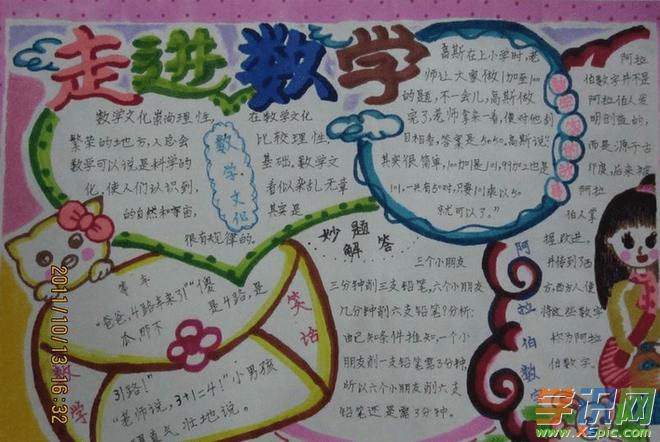 走进数学
数学文化崇尚理性,
繁荣的地方,人总会
数学可以说是科学的
化,使人们认识到,
的自然和宇宙,
很有规律的.
数学文化
在数学文化
比较理性,
基础,数学文
看似杂乱无章
其实是
高斯在上小学时,老
师让大家做1加至100
的题,不一会儿,高斯做
完了,老师拿来一看,便对他刮
目相看,答案是5050,高斯说:
其实很简单,100加1是101,99加2也是
101,一共有50对,只要101乘以50
就可以了."
阿拉
伯数字并不是
阿拉伯人发
明创造的,
而是源于古
印度,后来被
阿拉
伯人掌
握、改进,
并传到了西
方,西方人便
将这些数字
称为阿拉
伯数字.
阿拉伯数字
妙题
解答
三个小朋友
三分钟削三支铅笔,六个小朋友
几分钟削六支铅笔?分析:
由已知条件推知,一个小
朋友削一支铅笔需3分钟,
所以六个小朋友削六支
铅笔还是需3分钟.
等车
"爸爸,4路车来了!""傻
瓜,那不
是4路,是
31路!"
"老师说,3+1=4!"小男孩
壮地说.
数学
笑话
2011/10/13 16:32
学识网
www.xspic.com